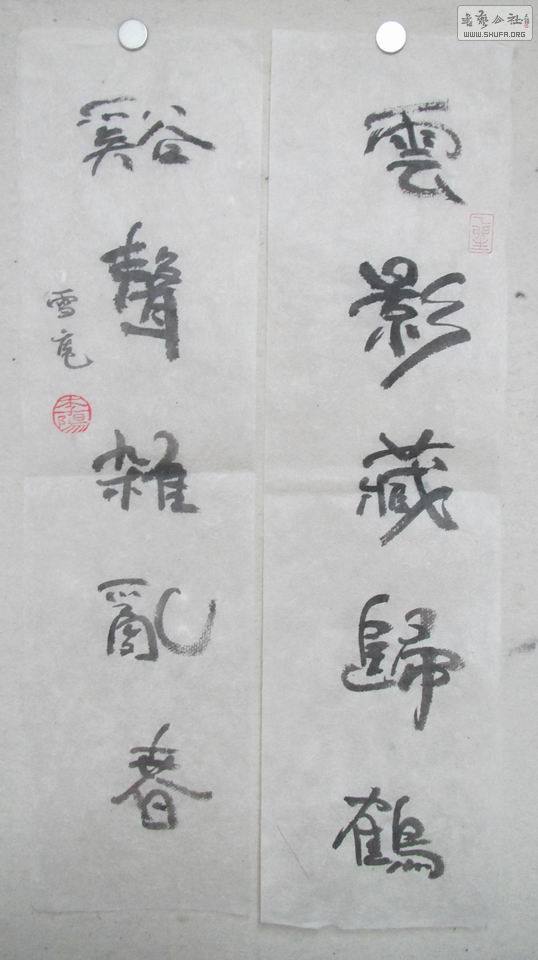 雲影藏歸鶴
谿聲雜亂春
雪亮
書藝公社
WWW.SHUFA.ORG